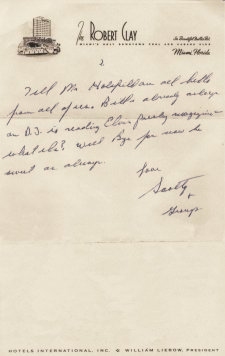 The ROBERT CLAY
MIAMI'S ONLY DOWNTOWN POOL AND CABANA CLUB
Miami, Florida
2
Tell Mr. all hello
from all of us. Bill's already asleep
an D.J. is reading Elvis Presley magazines
what else? Well Bye for now be
sweet as always.
Love
Scotty
+
Group
HOTELS INTERNATIONAL, INC. WILLIAM LIEBOW, PRESIDENT